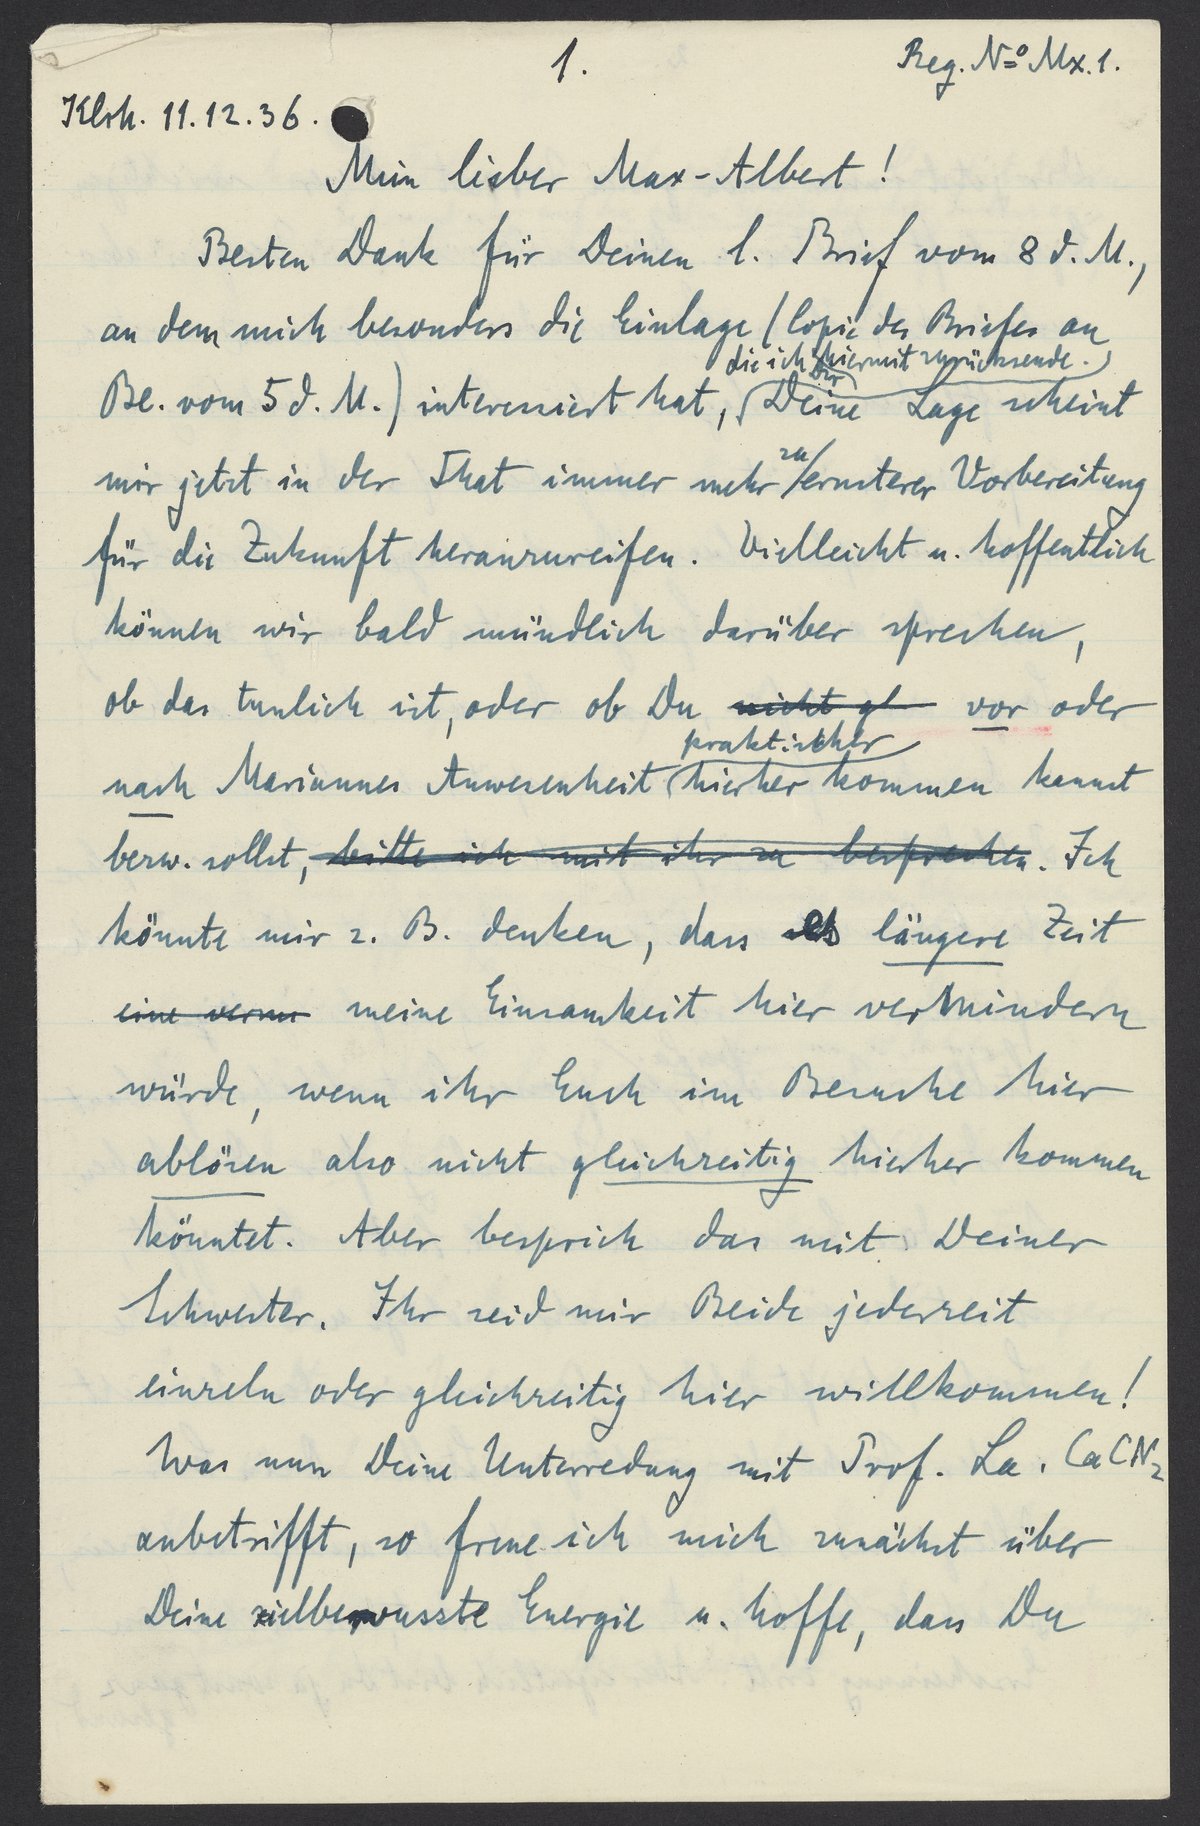 1.
Reg. No Mx. 1.
Klsh. 11.12.36.
Mein lieber Max-Albert!
Besten Dank für Deinen l. Brief vom 8 d. M.,
an dem mich besonders die Einlage (Copie des Briefes an
die ich Dir hiermit zurücksende.)
Be. vom 5 d. M.) interessiert hat, Deine Lage scheint
mir jetzt in der That immer mehr zu ernsterer Vorbereitung
für die Zukunft heranzureifen. Vielleicht u. hoffentlich
können wir bald mündlich darüber sprechen,
ob das tunlich ist, oder ob Du nicht gl vor oder
praktischer
nach Mariannes Anwesenheit hierher kommen kannst
bezw. sollst, bitte ich mit ihr zu besprechen. Ich
könnte mir z. B. denken, dass es längere Zeit
eine verm meine Einsamkeit hier vermindern
würde, wenn ihr Euch im Besuche hier
ablösen also nicht gleichzeitig hierher kommen
könntet. Aber besprich das mit Deiner
Schwester. Ihr seid mir Beide jederzeit
einzeln oder gleichzeitig hier willkommen!
Was nun Deine Unterredung mit Prof. La. CaCN2
anbetrifft, so freue ich mich zunächst über
Deine zielbewusste Energie u. hoffe, dass Du